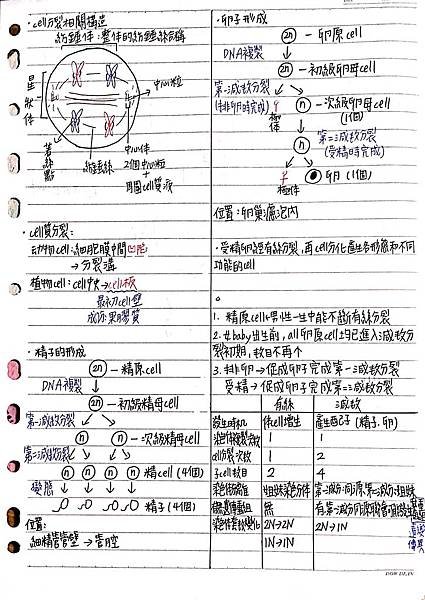 ・cell分裂相關構造
紡錘体:整体的紡錘絲合稱
星狀体
中心粒
著絲點
紡錘絲
中心体
2個中心粒
+
周圍cell質液
・cell質分裂:
動物cell:細胞膜中間凹陷
→分裂溝
植物cell:cell中央→cell板
最初cell壁
成份果膠質
・精子的形成
2n —精原cell
DNA複製
2n —初級精母cell
第一減數分裂
n n —次級精母cell
第二減數分裂
n n n n 精cell(4個)
變態
精子(4個)
位置:
細精管管壁→管腔
・卵子形成
2n —卵原cell
DNA複製
2n —初級卵母cell
第一減數分裂
(排卵時完成)
極体
n —次級卵母cell
(1個)
第二減數分裂
(受精時完成)
n
極体
卵(1個)
位置:卵巢濾泡內
・受精卵經有絲分裂,再cell分化產生各形態和不同
功能的cell
1. 精原cell在男性一生中能不斷有絲分裂
2. 女baby出生前,all卵原cell均已進入減數分
裂初期,數目不再↑
3. 排卵→促成卵子完成第一減數分裂
受精→促成卵子完成第二減數分裂
有絲 減數
發生時机 体cell增生 產生配子(精子.卵)
染色体複製次數 1 1
cell分裂次數 1 2
子cell數目 2 4
染色体分離 姐妹染色分体 第一減分:同源,第二減分:姐妹
無
染色体套數變化 2N→2N 2N→1N
1N→1N